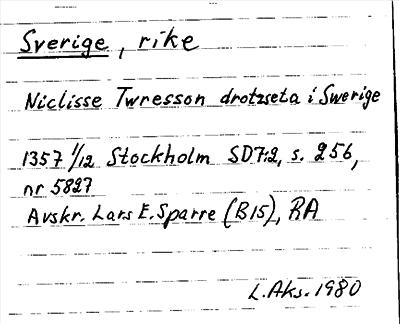 Sverige, rike
Niclisse Twresson drotzseta i Swerige
1357 1/12 Stockholm SD7:2, s. 256,
nr 5827
Avskr. Lars E. Sparre (B15), RA
L. Aks. 1980